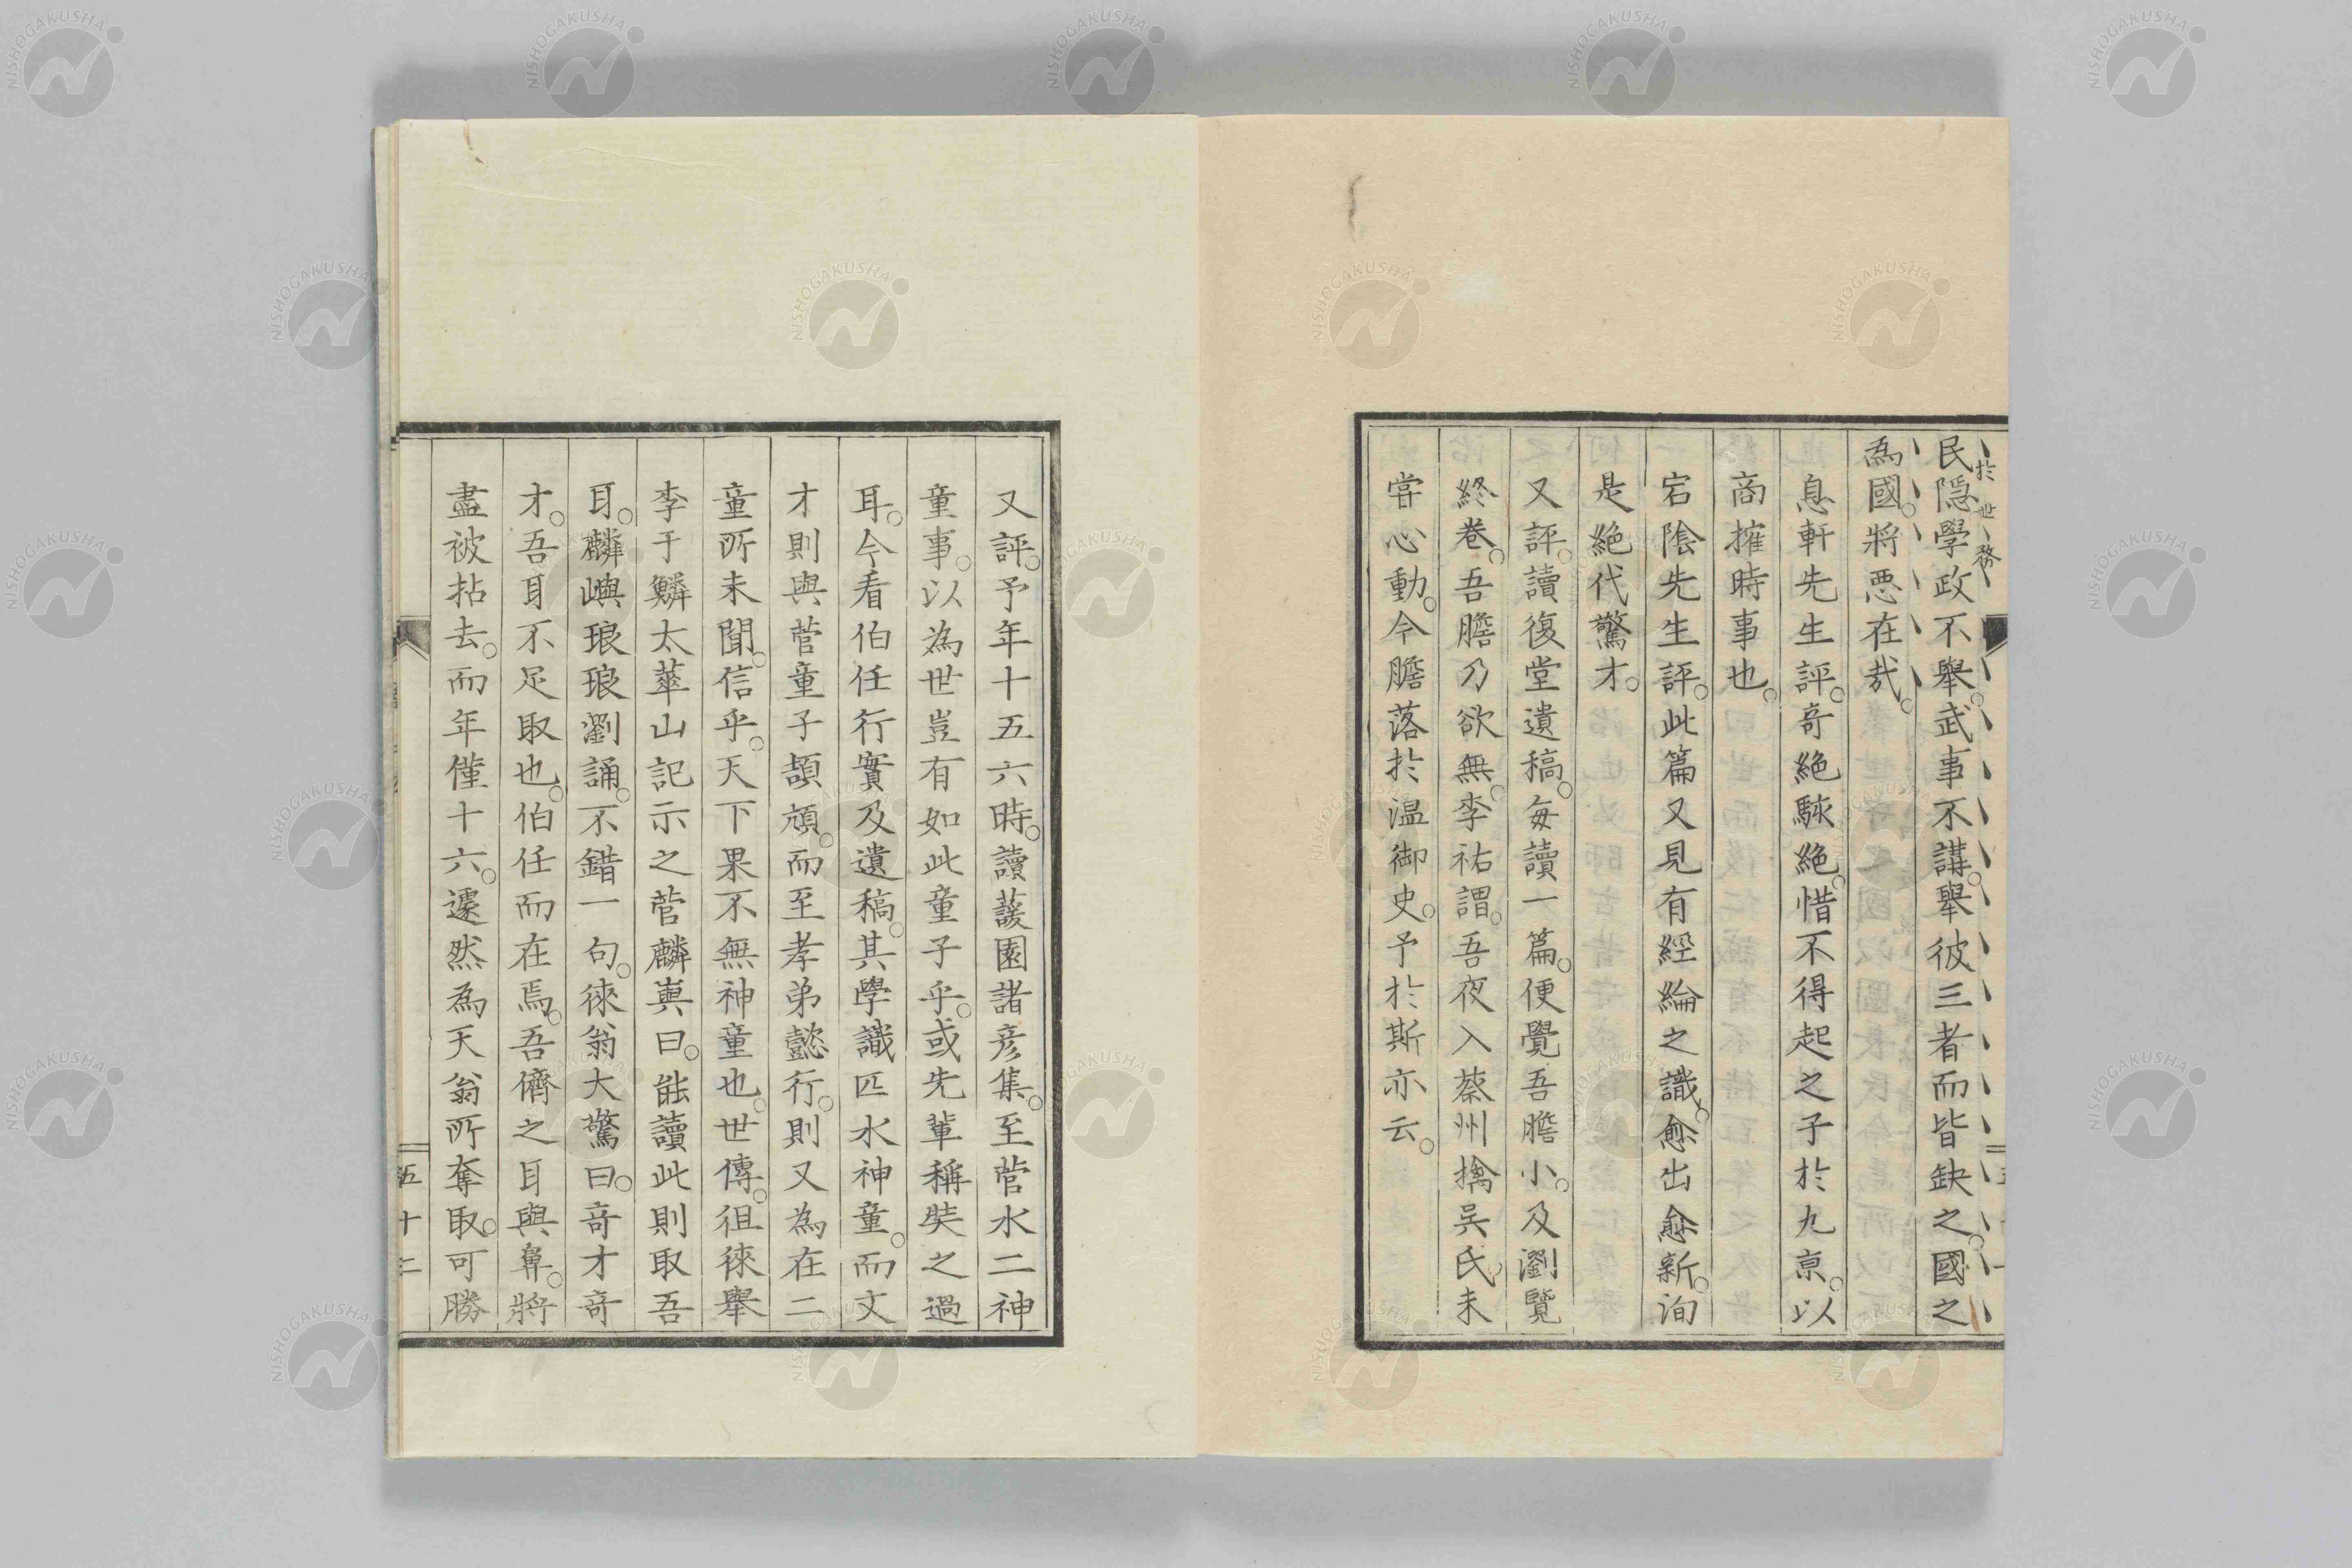 於世務
民隱學政不舉。武事不講。舉彼三者而皆缺之。國之
為國。將惡在哉。
息軒先生評。奇絶駭絶。惜不得起之子於九京。以
商搉時事也。
宕陰先生評。此篇又見有經綸之識。愈出愈新。洵
是絶代驚才。
又評。讀復堂遺稿。每讀一篇。便覺吾膽小。及瀏覽
終巻。吾膽乃欲無。李祐謂。吾夜入蔡州擒吳氏。未
甞心動。今膽落於温御史。予於斯亦云。
又評。予年十五六時。讀蘐園諸彦集。至菅水二神
童事。以為世豈有如此童子乎。或先輩稱奘之過
耳。今看伯任行實及遺稿。其學識匹水神童。而文
才則與菅童子頡頏。而至孝弟懿行。則又為在二
童所未聞。信乎。天下果不無神童也。世傳。徂徠舉
李于鱗太華山記示之菅麟嶼曰。能讀此則取吾
耳。麟嶼琅琅瀏誦。不錯一句。徠翁大驚曰。奇才奇
才。吾耳不足取也。伯任而在焉。吾儕之耳與鼻。將
盡被拈去。而年僅十六。遽然為天翁所奪取。可勝
五十二
NISHOGAKUSHA